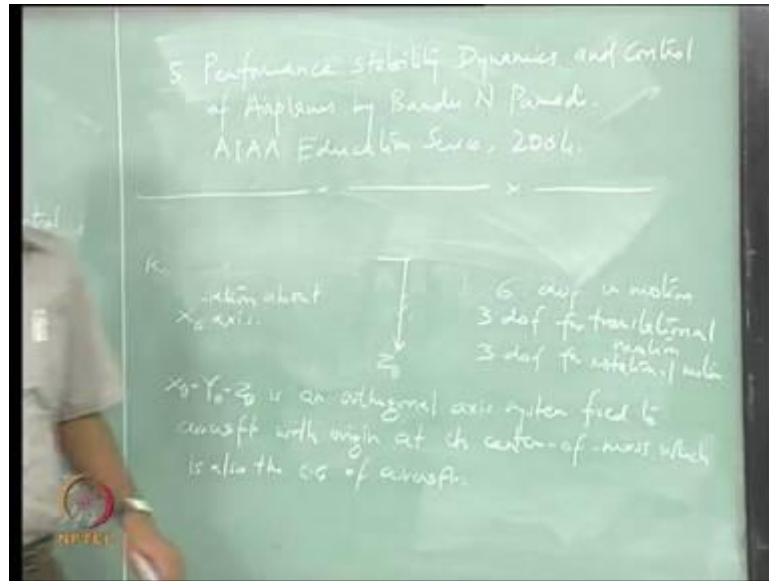 5 Performance Stability Dynamics and Control
of Airplanes by Bandu N Pamadi.
AIAA Education Series, 2004.
x
about
X_B axis.
Z_B
6 dof in motion
3 dof for translational
motion
3 dof for rotational motion
X_B-Y_B-Z_B is an orthogonal axis system fixed to
aircraft with origin at the center-of-mass which
is also the c.g of aircraft.
NPTEL